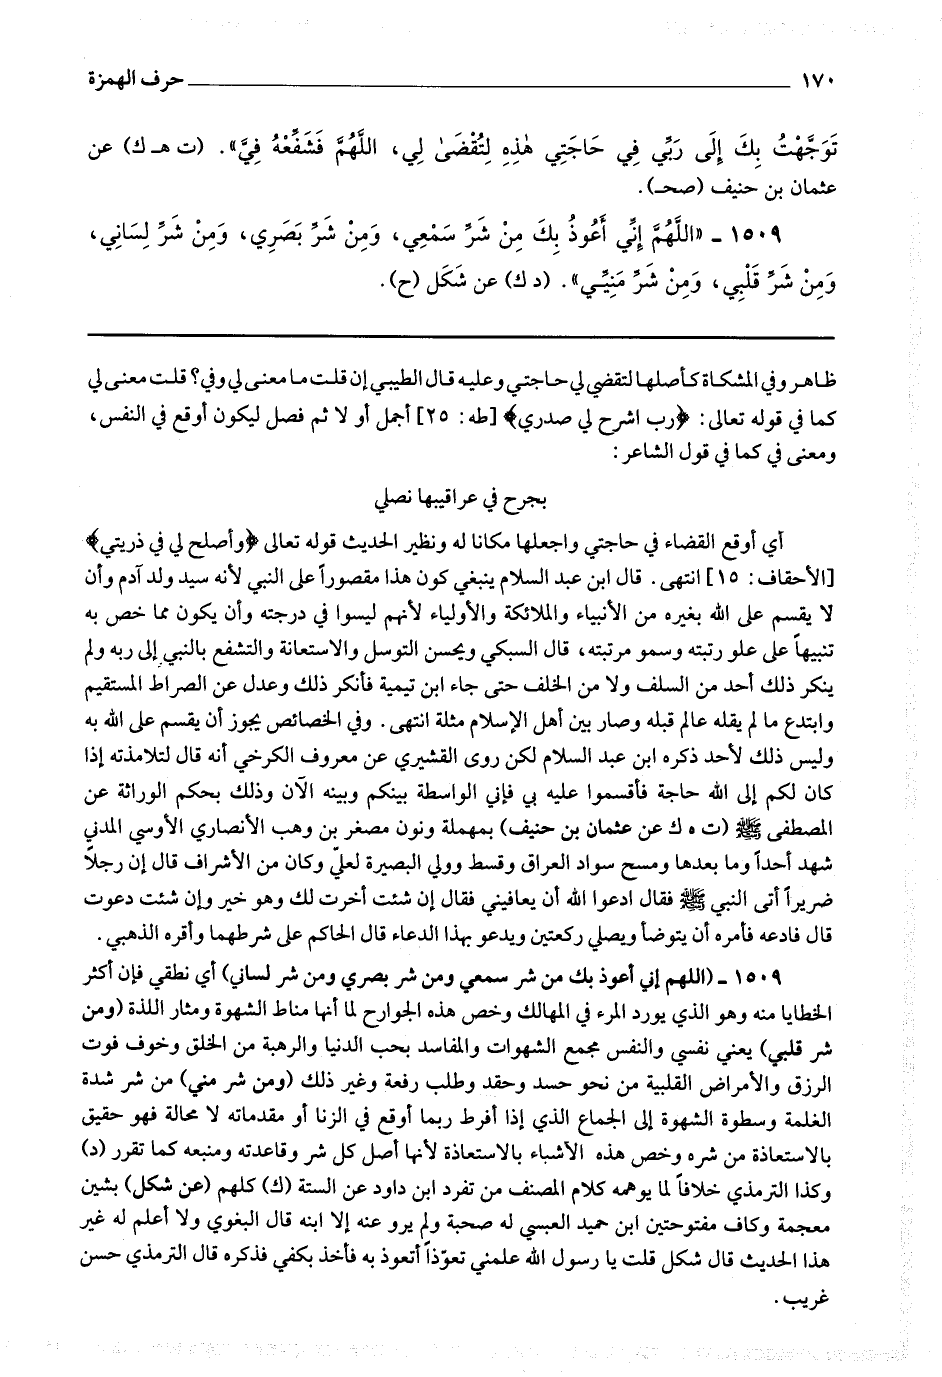 ١٧٠ حرف الهمزة
تَوَجَّهْتُ بِكَ إِلَى رَبِّي فِي حَاجَتِي هٰذِهِ لِتُقْضَىٰ لِي، اللَّهُمَّ فَشَفِّعْهُ فِيَّ». (ت هـ ك) عن
عثمان بن حنيف (صحـ).
١٥٠٩ ـ «اللَّهُمَّ إِنِّي أَعُوذُ بِكَ مِنْ شَرِّ سَمْعِي، وَمِنْ شَرِّ بَصَرِي، وَمِنْ شَرِّ لِسَانِي،
وَمِنْ شَرِّ قَلْبِي، وَمِنْ شَرِّ مَنِيِّـي». (د ك) عن شَكَل (ح).
ظاهر وفي المشكاة كأصلها لتقضي لي حاجتي وعليه قال الطيبي إن قلت ما معنى لي وفي؟ قلت معنى لي
كما في قوله تعالى: ﴿رب اشرح لي صدري﴾ [طه: ٢٥] أجمل أو لا ثم فصل ليكون أوقع في النفس،
ومعنى في كما في قول الشاعر:
بجرح في عراقيبها نصلي
أي أوقع القضاء في حاجتي واجعلها مكانا له ونظير الحديث قوله تعالى ﴿وأصلح لي في ذريتي﴾
[الأحقاف: ١٥] انتهى. قال ابن عبد السلام ينبغي كون هذا مقصوراً على النبي لأنه سيد ولد آدم وأن
لا يقسم على الله بغيره من الأنبياء والملائكة والأولياء لأنهم ليسوا في درجته وأن يكون مما خص به
تنبيهاً على علو رتبته وسمو مرتبته، قال السبكي ويحسن التوسل والاستعانة والتشفع بالنبي إلى ربه ولم
ينكر ذلك أحد من السلف ولا من الخلف حتى جاء ابن تيمية فأنكر ذلك وعدل عن الصراط المستقيم
وابتدع ما لم يقله عالم قبله وصار بين أهل الإسلام مثلة انتهى. وفي الخصائص يجوز أن يقسم على الله به
وليس ذلك لأحد ذكره ابن عبد السلام لكن روى القشيري عن معروف الكرخي أنه قال لتلامذته إذا
كان لكم إلى الله حاجة فأقسموا عليه بي فإني الواسطة بينكم وبينه الآن وذلك بحكم الوراثة عن
المصطفى ﷺ (ت ه ك عن عثمان بن حنيف) بمهملة ونون مصغر بن وهب الأنصاري الأوسي المدني
شهد أحداً وما بعدها ومسح سواد العراق وقسط وولي البصيرة لعليّ وكان من الأشراف قال إن رجلاً
ضريراً أتى النبي ﷺ فقال ادعوا الله أن يعافيني فقال إن شئت أخرت لك وهو خير وإن شئت دعوت
قال فادعه فأمره أن يتوضأ ويصلي ركعتين ويدعو بهذا الدعاء قال الحاكم على شرطهما وأقره الذهبي.
١٥٠٩ ـ (اللهم إني أعوذ بك من شر سمعي ومن شر بصري ومن شر لساني) أي نطقي فإن أكثر
الخطايا منه وهو الذي يورد المرء في المهالك وخص هذه الجوارح لما أنها مناط الشهوة ومثار اللذة (ومن
شر قلبي) يعني نفسي والنفس مجمع الشهوات والمفاسد بحب الدنيا والرهبة من الخلق وخوف فوت
الرزق والأمراض القلبية من نحو حسد وحقد وطلب رفعة وغير ذلك (ومن شر مني) من شر شدة
الغلمة وسطوة الشهوة إلى الجماع الذي إذا أفرط ربما أوقع في الزنا أو مقدماته لا محالة فهو حقيق
بالاستعاذة من شره وخص هذه الأشباء بالاستعاذة لأنها أصل كل شر وقاعدته ومنبعه كما تقرر (د)
وكذا الترمذي خلافاً لما يوهمه كلام المصنف من تفرد ابن داود عن الستة (ك) كلهم (عن شكل) بشين
معجمة وكاف مفتوحتين ابن حميد العبسي له صحبة ولم يرو عنه إلا ابنه قال البغوي ولا أعلم له غير
هذا الحديث قال شكل قلت يا رسول الله علمني تعوّذاً أتعوذ به فأخذ بكفي فذكره قال الترمذي حسن
غريب.